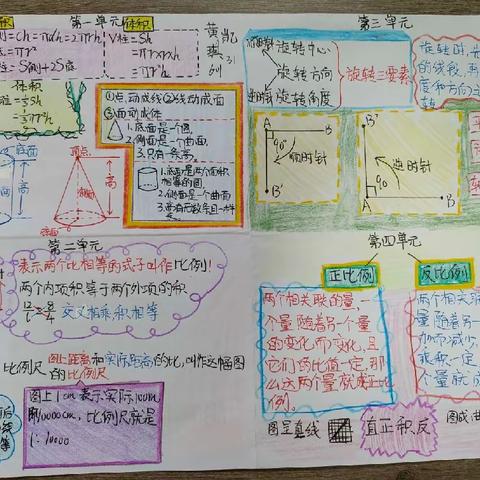 第一单元
积
体积
侧=Ch=πdh=2πrh
底=πr²
表=S侧+2S底
V柱=Sh
=πr×r×h
=πr²h
黄凯
琪31
列
体积
锥=⅓Sh
=⅓πr²h
底面
高
顶点
高
底面
①点动成线②线动成面
③面动成体
1.底面是一个圆
2.侧面是一个曲面
3.只有一条高
1.底面是两个面积
相等的圆
2.侧面是一个曲面
3.有无数条且一样
第三单元
旋转中心
旋转方向
旋转角度
顺时针
逆时针
旋转三要素
旋转时
的线段
度和方向
A
B
90°
顺时针
B'
B'
90°
逆时针
A
B
第二单元
表示两个比相等的式子叫作比例!
两个内项积等于两个外项的积
交叉相乘积相等
比例尺
图上距离和实际距离的比,叫作这幅图
的比例尺
图上1cm表示实际100m
即10000cm,比例尺就是
1:10000
第四单元
正比例
反比例
两个相关联的量,一
个量随着另一个量
的变化而变化,且
它们的比值一定,那
么这两个量就成正比
例。
两个相关
量随着另一
加而减少,
乘积一定,
个量就
图呈直线
直正积反
图成曲